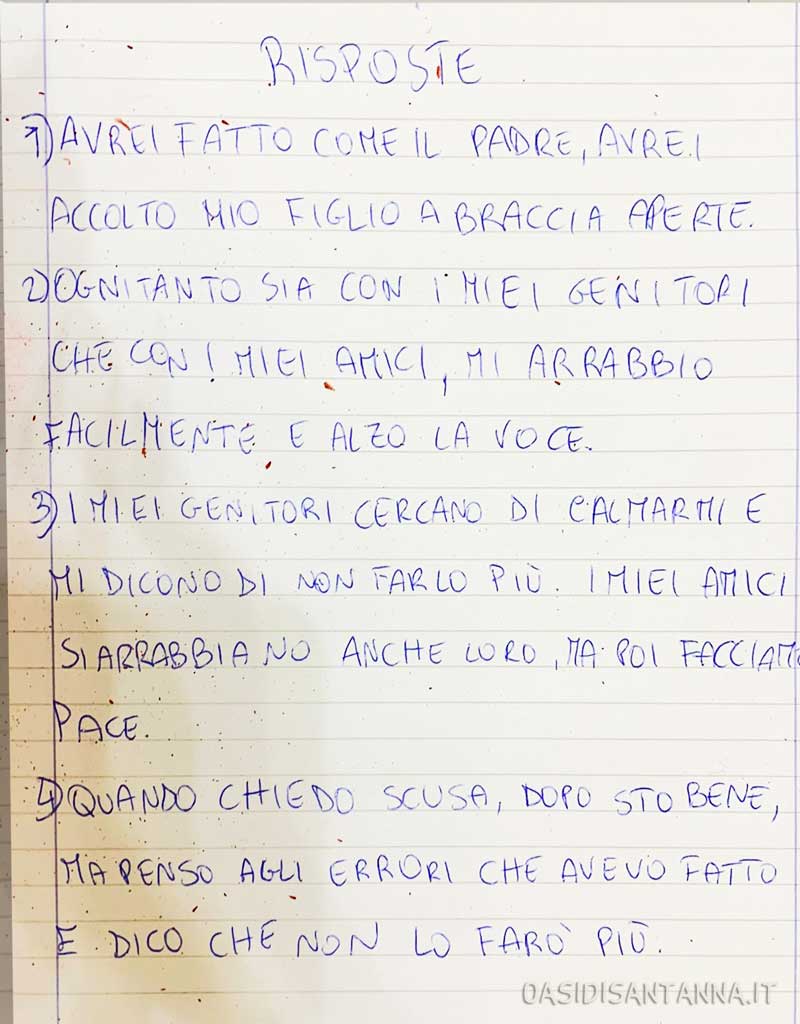 RISPOSTE
1) AVREI FATTO COME IL PADRE, AVREI
ACCOLTO MIO FIGLIO A BRACCIA APERTE.
2) OGNITANTO SIA CON I MIEI GENITORI
CHE CON I MIEI AMICI, MI ARRABBIO
FACILMENTE E ALZO LA VOCE.
3) I MIEI GENITORI CERCANO DI CALMARMI E
MI DICONO DI NON FARLO PIÙ. I MIEI AMICI
SI ARRABBIANO ANCHE LORO, MA POI FACCIAMO
PACE.
4) QUANDO CHIEDO SCUSA, DOPO STO BENE,
MA PENSO AGLI ERRORI CHE AVEVO FATTO
E DICO CHE NON LO FARÒ PIÙ.
OASIDISANTANNA.IT